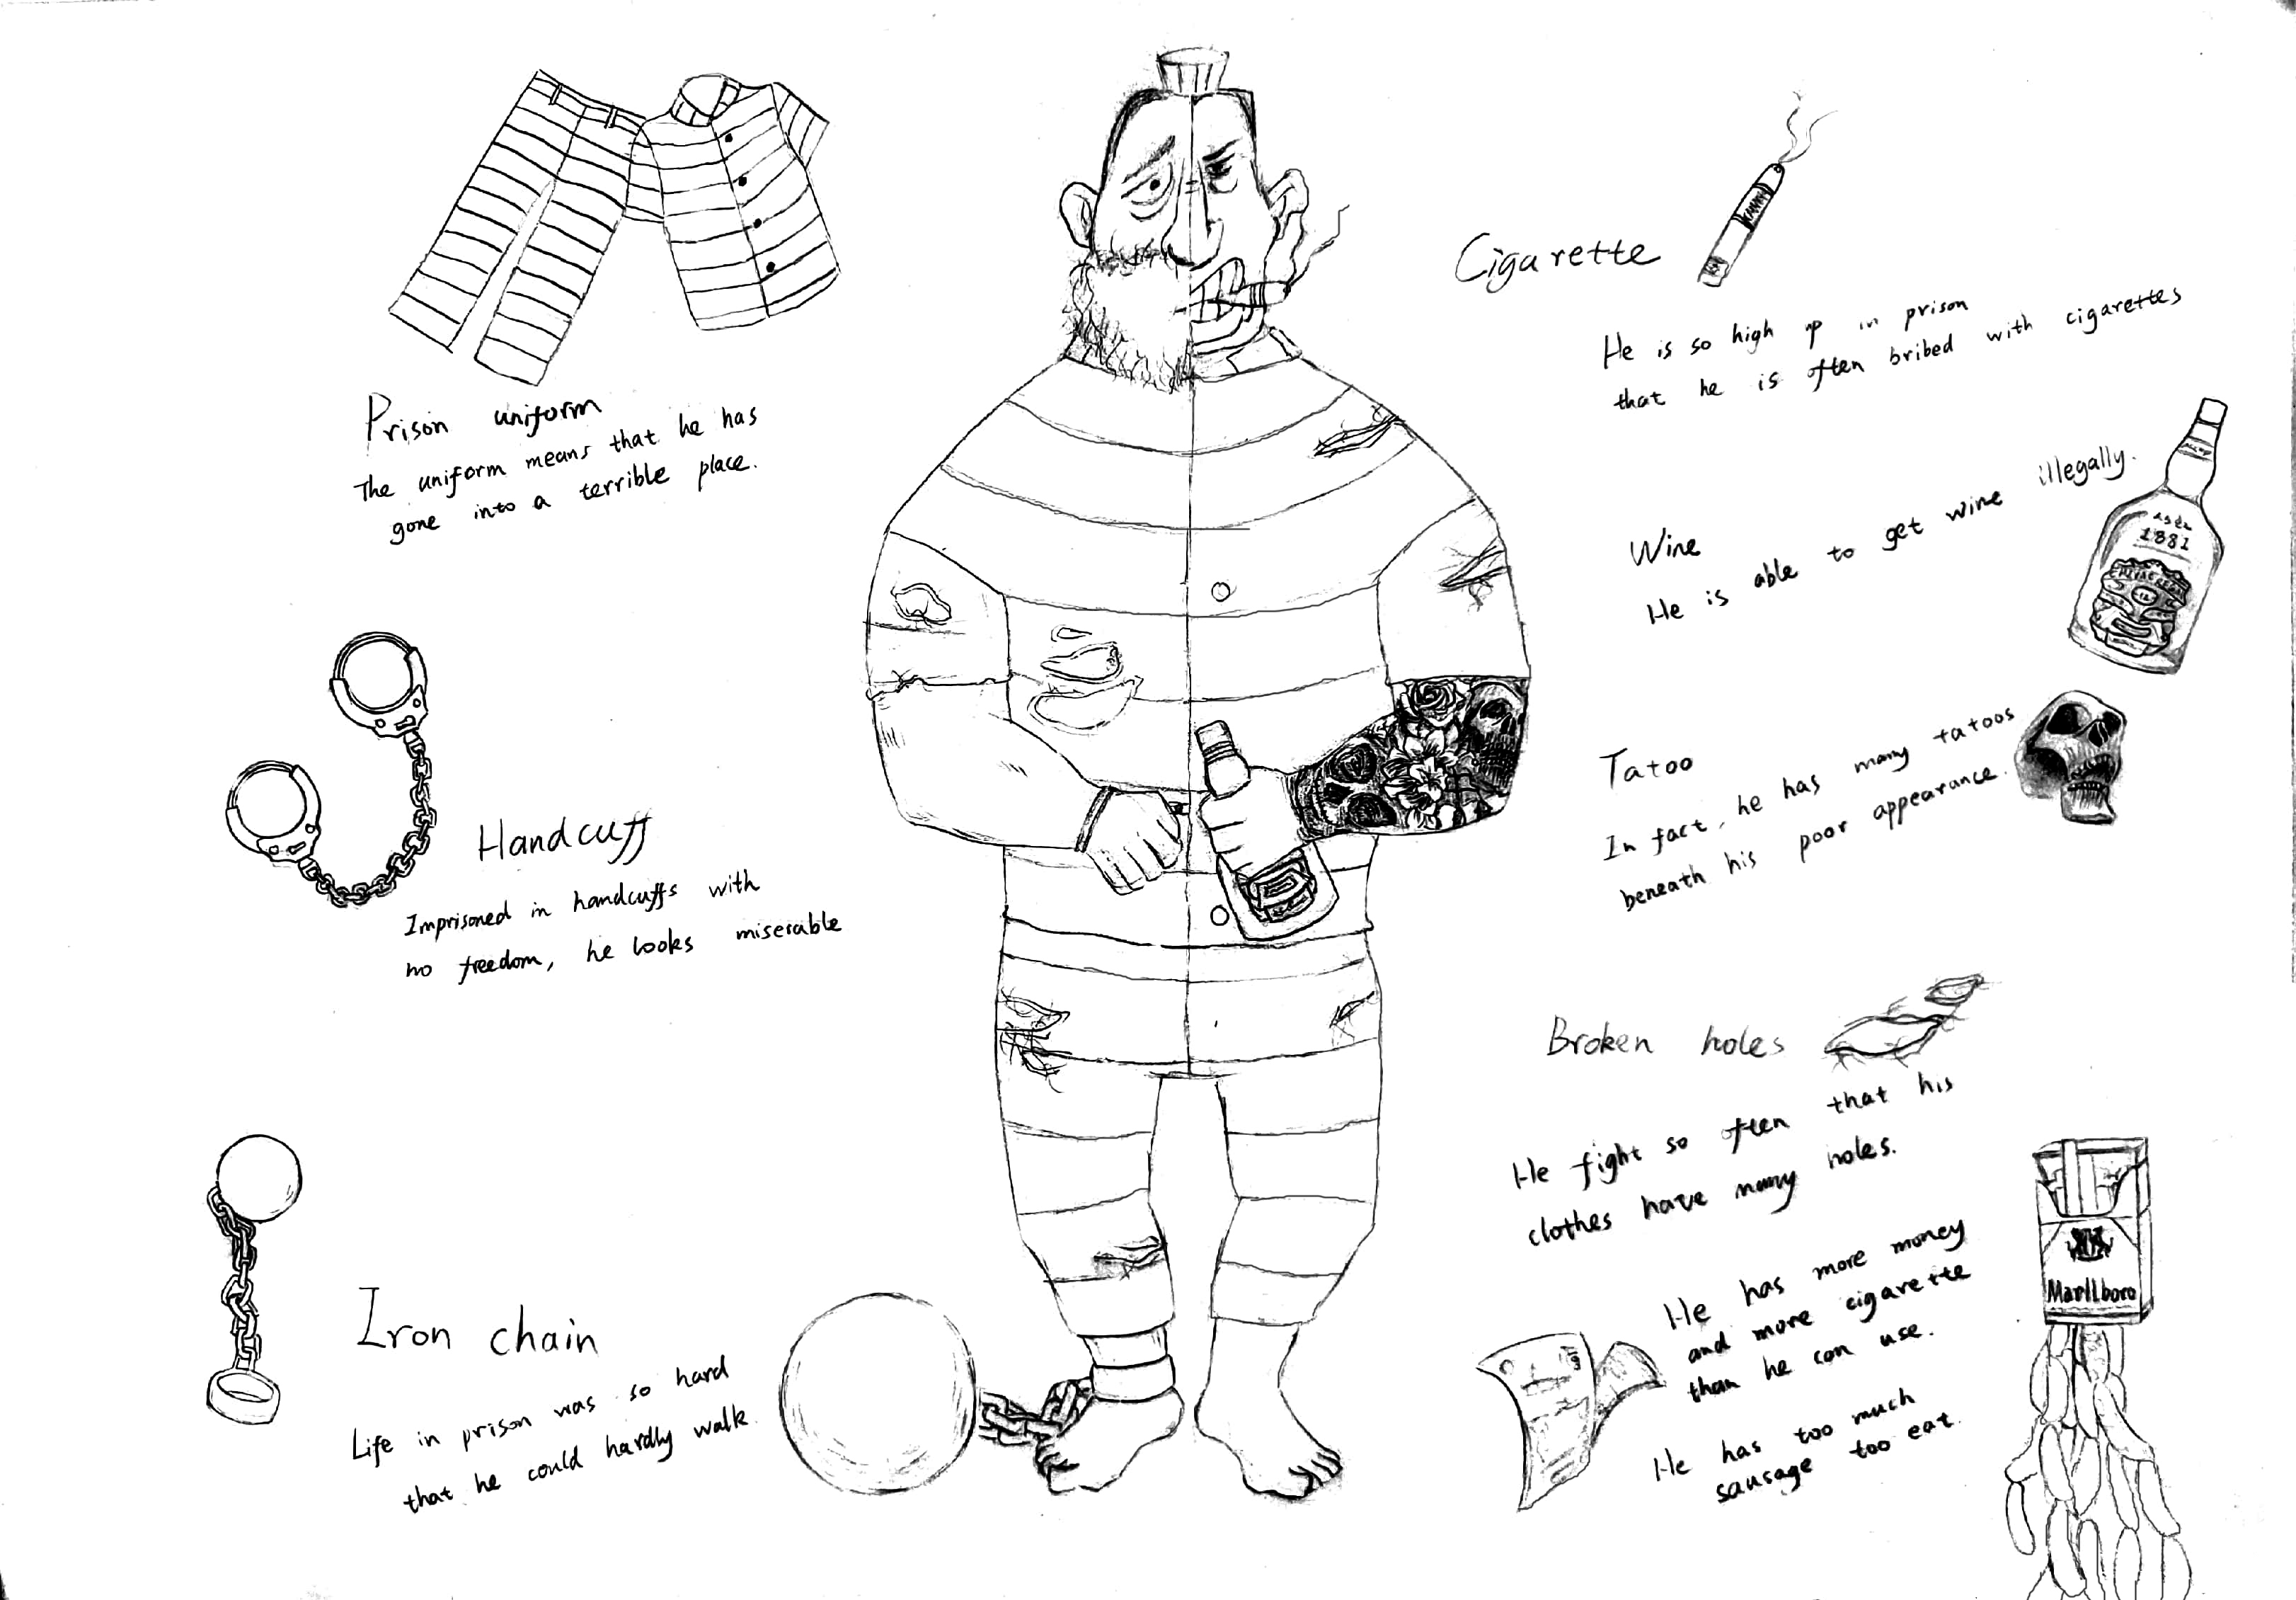 Prison uniform
The uniform means that he has
gone into a terrible place.
Handcuff
Imprisoned in handcuffs with
no freedom, he looks miserable
Iron chain
Life in prison was so hard
that he could hardly walk.
Cigarette
He is so high up in prison
that he is often bribed with cigarettes
Wine
He is able to get wine illegally.
1881
Tatoo
In fact, he has many tatoos
beneath his poor appearance.
Broken holes
He fight so often that his
clothes have many holes.
He has more money
and more cigarette
than he can use.
He has too much
sausage too eat.
Marllboro